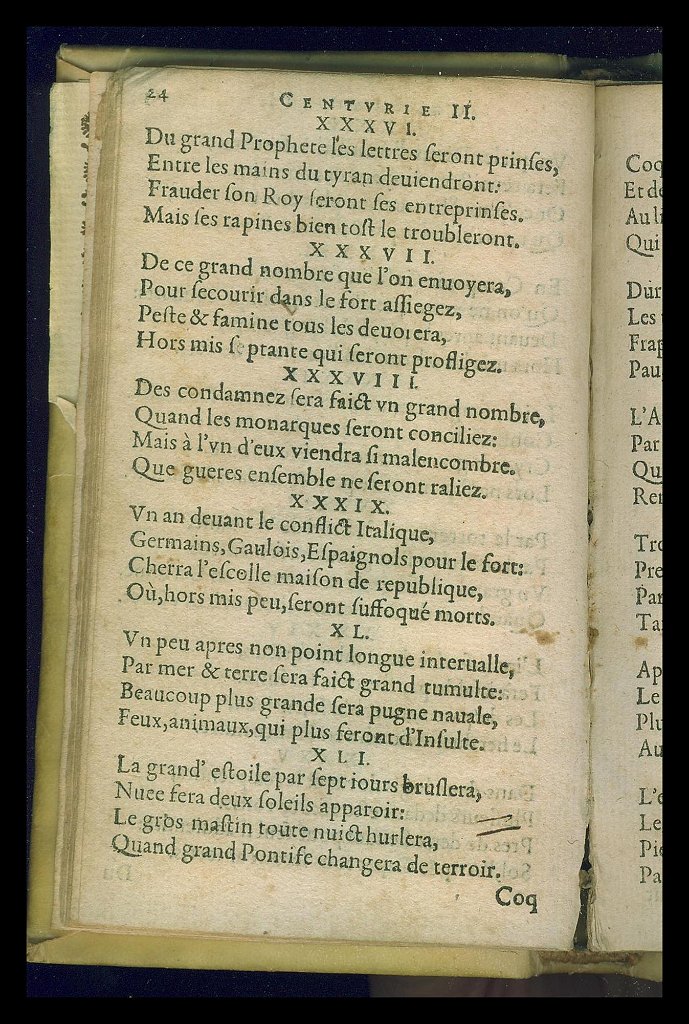 24
CENTVRIE II.
XXXVI.
Du grand Prophete les lettres ſeront prinſes,
Entre les mains du tyran deuiendront:
Frauder ſon Roy ſeront ſes entreprinſes.
Mais ſes rapines bien toſt le troubleront.
XXXVII.
De ce grand nombre que l'on enuoyera,
Pour ſecourir dans le fort aſſiegez,
Peſte & famine tous les deuorera,
Hors mis ſeptante qui ſeront profligez.
XXXVIII.
Des condamnez ſera faict vn grand nombre,
Quand les monarques ſeront conciliez:
Mais à l'vn d'eux viendra ſi malencombre.
Que gueres enſemble ne ſeront raliez.
XXXIX.
Vn an deuant le conflict Italique,
Germains, Gaulois, Eſpaignols pour le fort:
Cherra l'eſcolle maiſon de republique,
Où, hors mis peu, ſeront ſuffoqué morts.
XL.
Vn peu apres non point longue interualle,
Par mer & terre ſera faict grand tumulte:
Beaucoup plus grande ſera pugne nauale,
Feux, animaux, qui plus feront d'Inſulte.
XLI.
La grand' eſtoile par ſept iours bruſlera,
Nuee fera deux ſoleils apparoir:
Le gros maſtin toute nuict hurlera,
Quand grand Pontife changera de terroir.
Coq
Coq
Et de
Au li
Qui
Dur
Les
Frap
Pau
L'A
Par
Qu
Ren
Tro
Pre
Par
Ta
Ap
Le
Plu
Au
L'e
Le
Pie
Pa